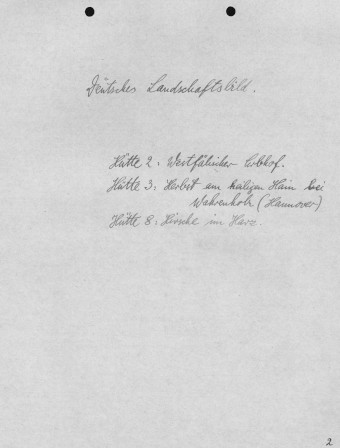 Deutsches Landschaftsbild.
Hütte 2: Westfälischer Erbhof.
Hütte 3: Herbst am heiligen Hain bei
Wahrenholz (Hannover)
Hütte 8: Hirsche im Harz.
2